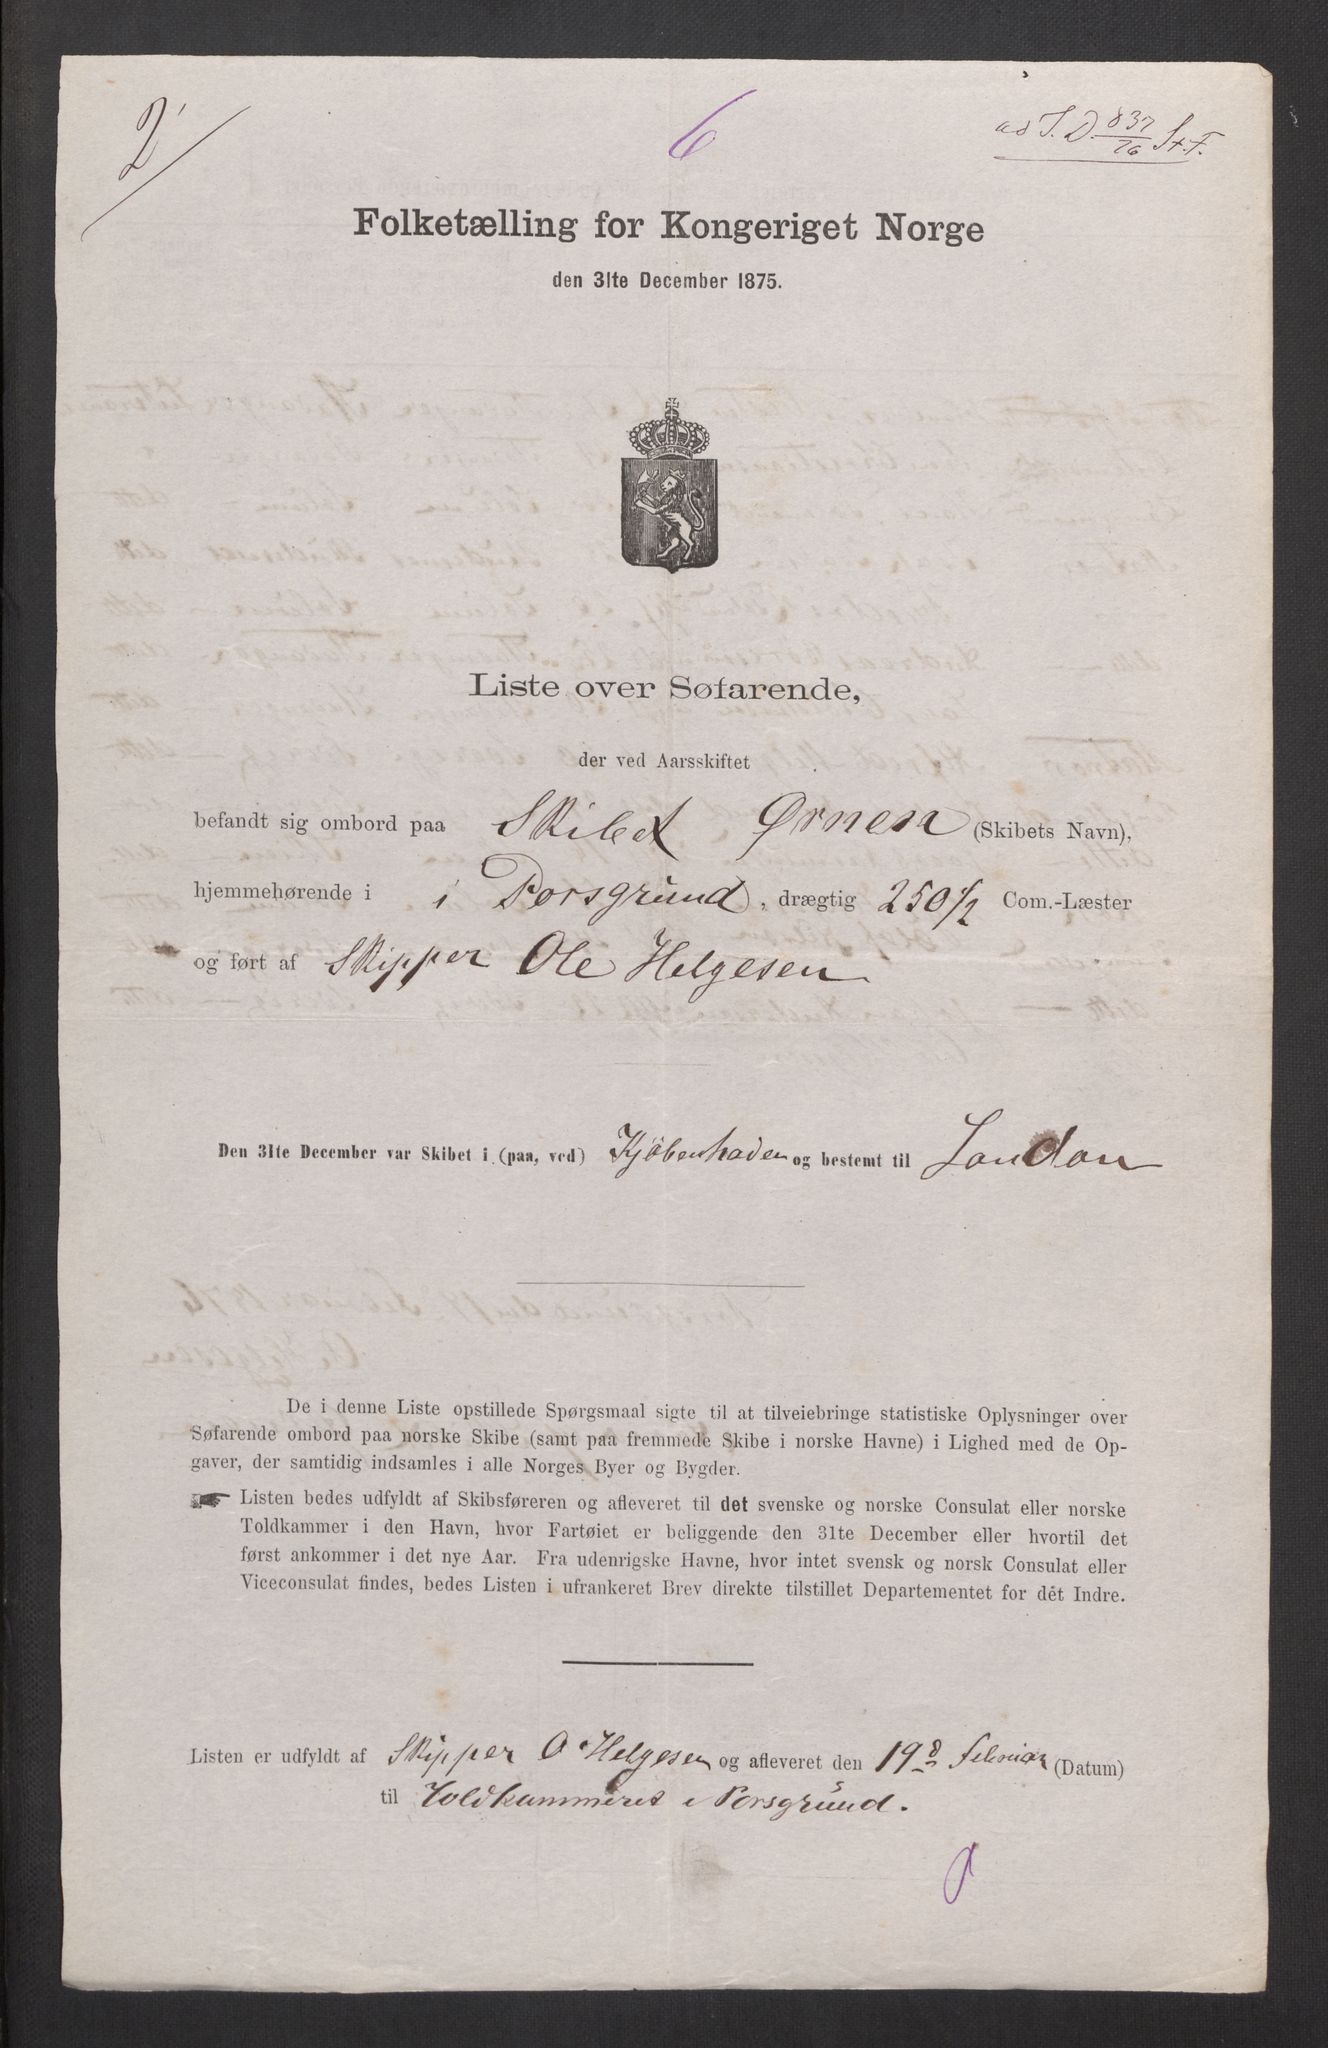 2'
6
ad I. D. 837/76 St. F.
Folketælling for Kongeriget Norge
den 31te December 1875.
Liste over Søfarende,
der ved Aarsskiftet
befandt sig ombord paa Skibet Ørnen (Skibets Navn),
hjemmehørende i i Porsgrund, drægtig 250 1/2 Com.-Læster
og ført af Skipper Ole Helgesen
Den 31te December var Skibet i (paa, ved) Kjøbenhaven og bestemt til London
De i denne Liste opstillede Spørgsmaal sigte til at tilveiebringe statistiske Oplysninger over
Søfarende ombord paa norske Skibe (samt paa fremmede Skibe i norske Havne) i Lighed med de Op-
gaver, der samtidig indsamles i alle Norges Byer og Bygder.
Listen bedes udfyldt af Skibsføreren og afleveret til det svenske og norske Consulat eller norske
Toldkammer i den Havn, hvor Fartøiet er beliggende den 31te December eller hvortil det
først ankommer i det nye Aar. Fra udenrigske Havne, hvor intet svensk og norsk Consulat eller
Viceconsulat findes, bedes Listen i ufrankeret Brev direkte tilstillet Departementet for dét Indre.
Listen er udfyldt af Skipper O Helgesen og afleveret den 19de Februar (Datum)
til Toldkammeret i Porsgrund.